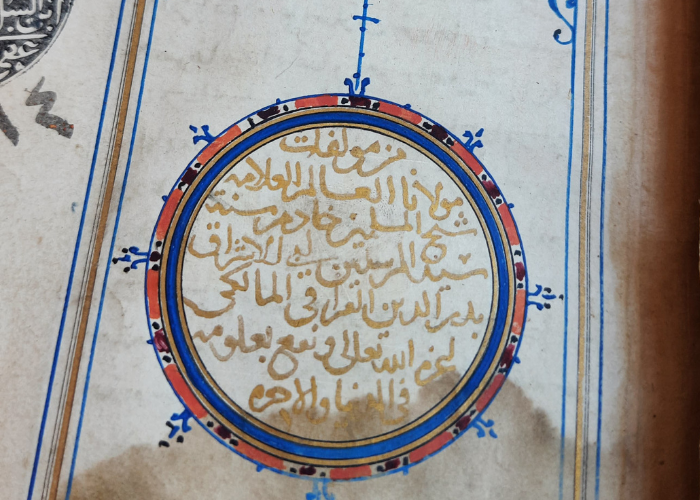 من مولفات
مولانا العالم العلامة
شيخ المسلمين خادم سنة
سيد المرسلين ابي الاشراق
بدر الدين القرافي المالكي
الله تعالى ونفع بعلومه
في الدنيا والاخره
١٤